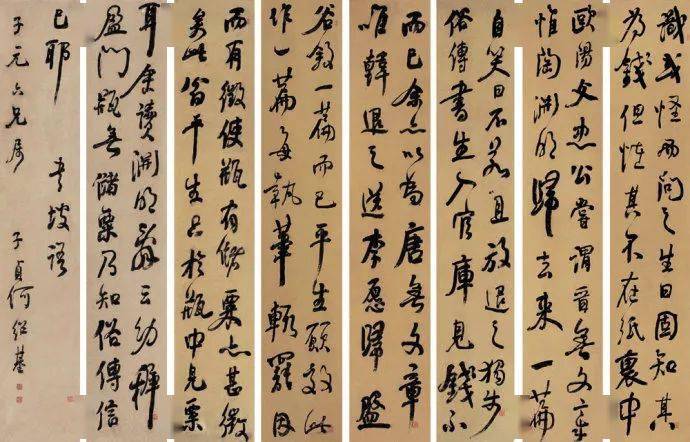 識或怪而問之生曰固知其
為錢但怪其不在紙裏中
歐陽文忠公嘗謂晉無文章
惟陶淵明歸去來一篇
自笑曰不若且放退之獨步
俗傳書生入官庫見錢不
而已余亦以為唐無文章
唯韓退之送李愿歸盤
谷敘一篇而已平生願效此
作一篇每執筆輒罷因
而有徵使瓶有儲粟亦甚微
矣此翁平生只於瓶中見粟
耳偶讀淵明辭云幼稚
盈門瓶無儲粟乃知俗傳信
已耶 書坡語
子元六兄屬 子貞何紹基